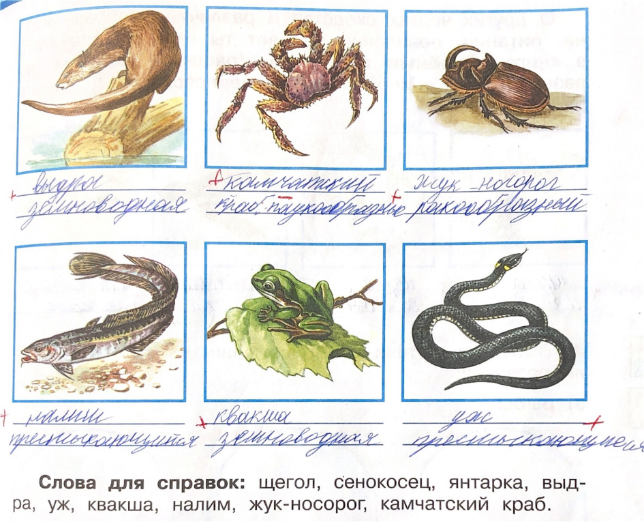 выдра
земноводная
камчатский
краб паукообразные
жук носорог
ракообразный
налим
пресмыкающийся
квакша
земноводная
уж
пресмыкающиеся
Слова для справок: щегол, сенокосец, янтарка, выд-
ра, уж, квакша, налим, жук-носорог, камчатский краб.